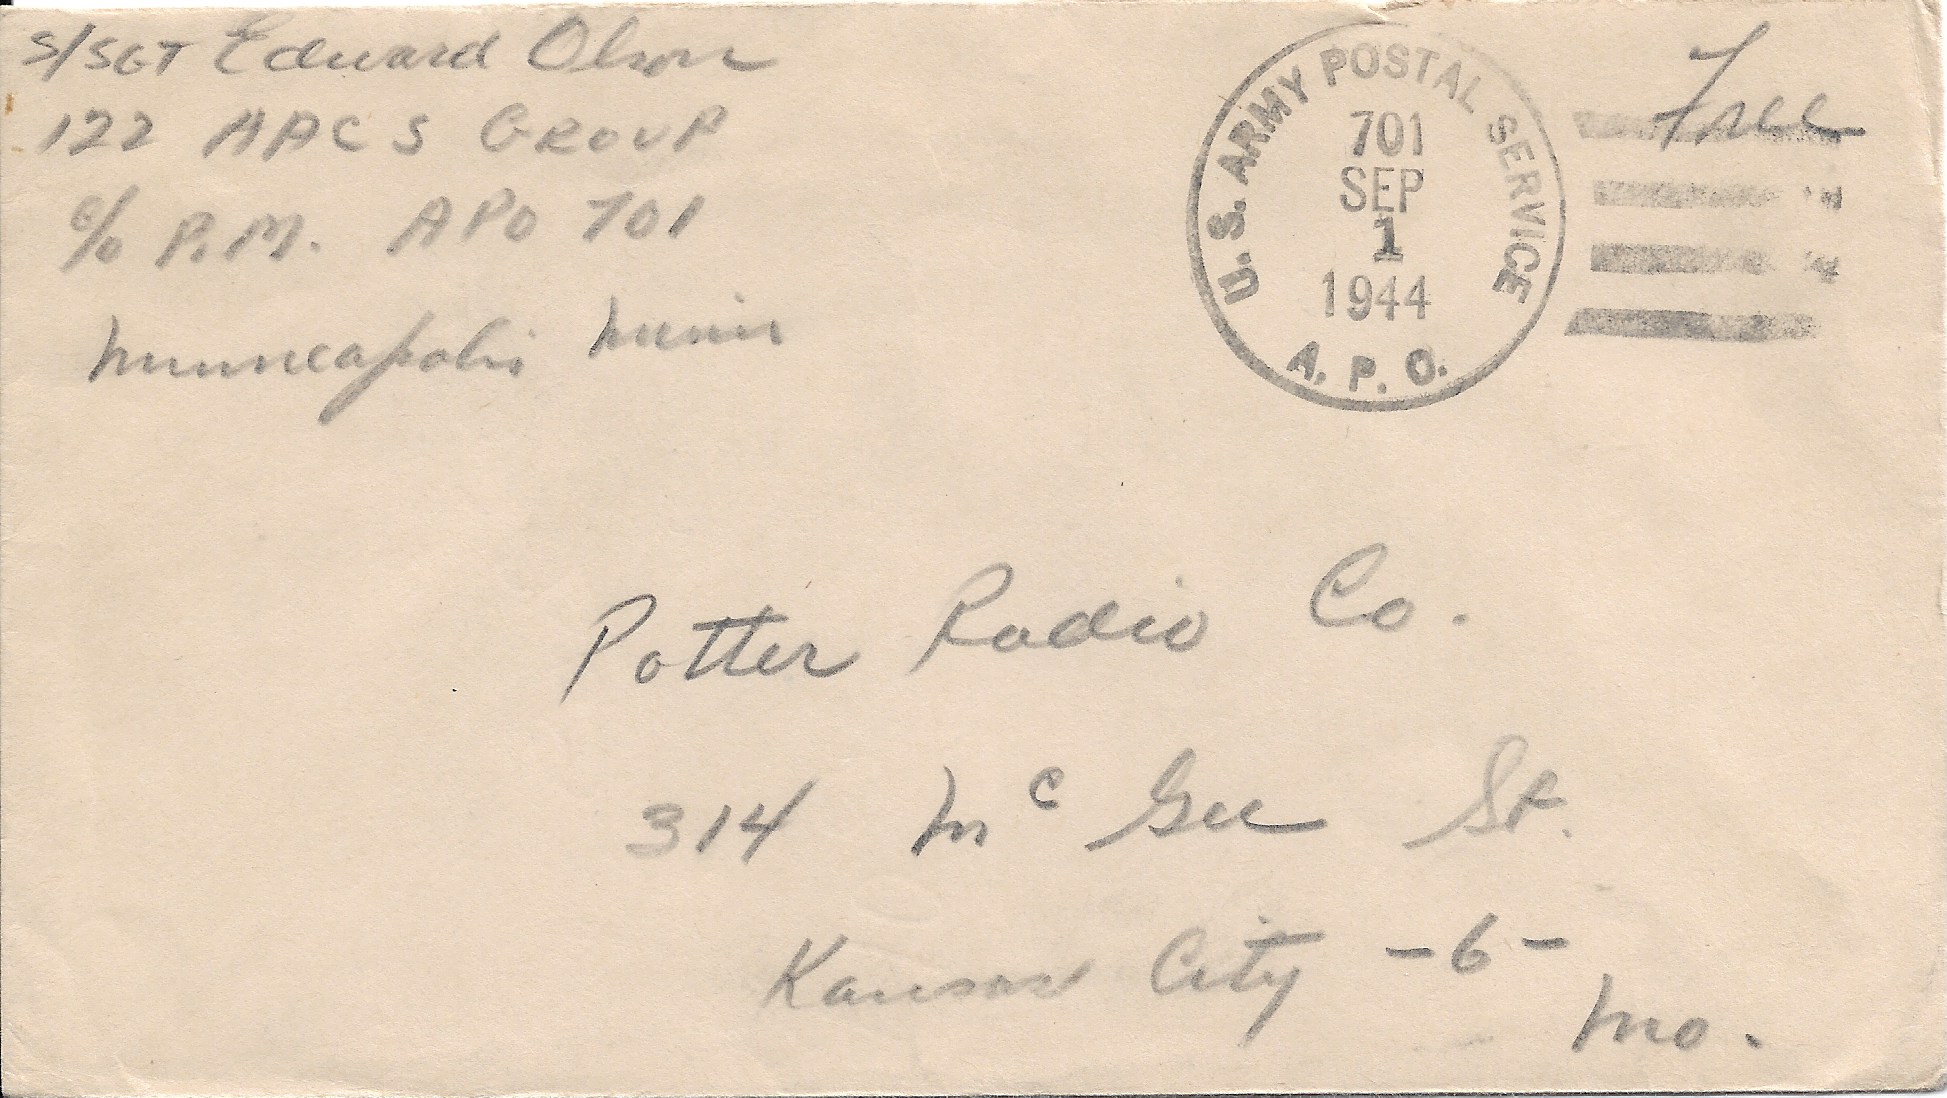 S/SGT Edward Olson
122 AACS GROUP
c/o P.M. APO 701
Minneapolis Minn
U.S. ARMY POSTAL SERVICE
701
SEP
1
1944
A. P. O.
Free
Potter Radio Co.
314 Mc Gee St.
Kansas City -6-
Mo.